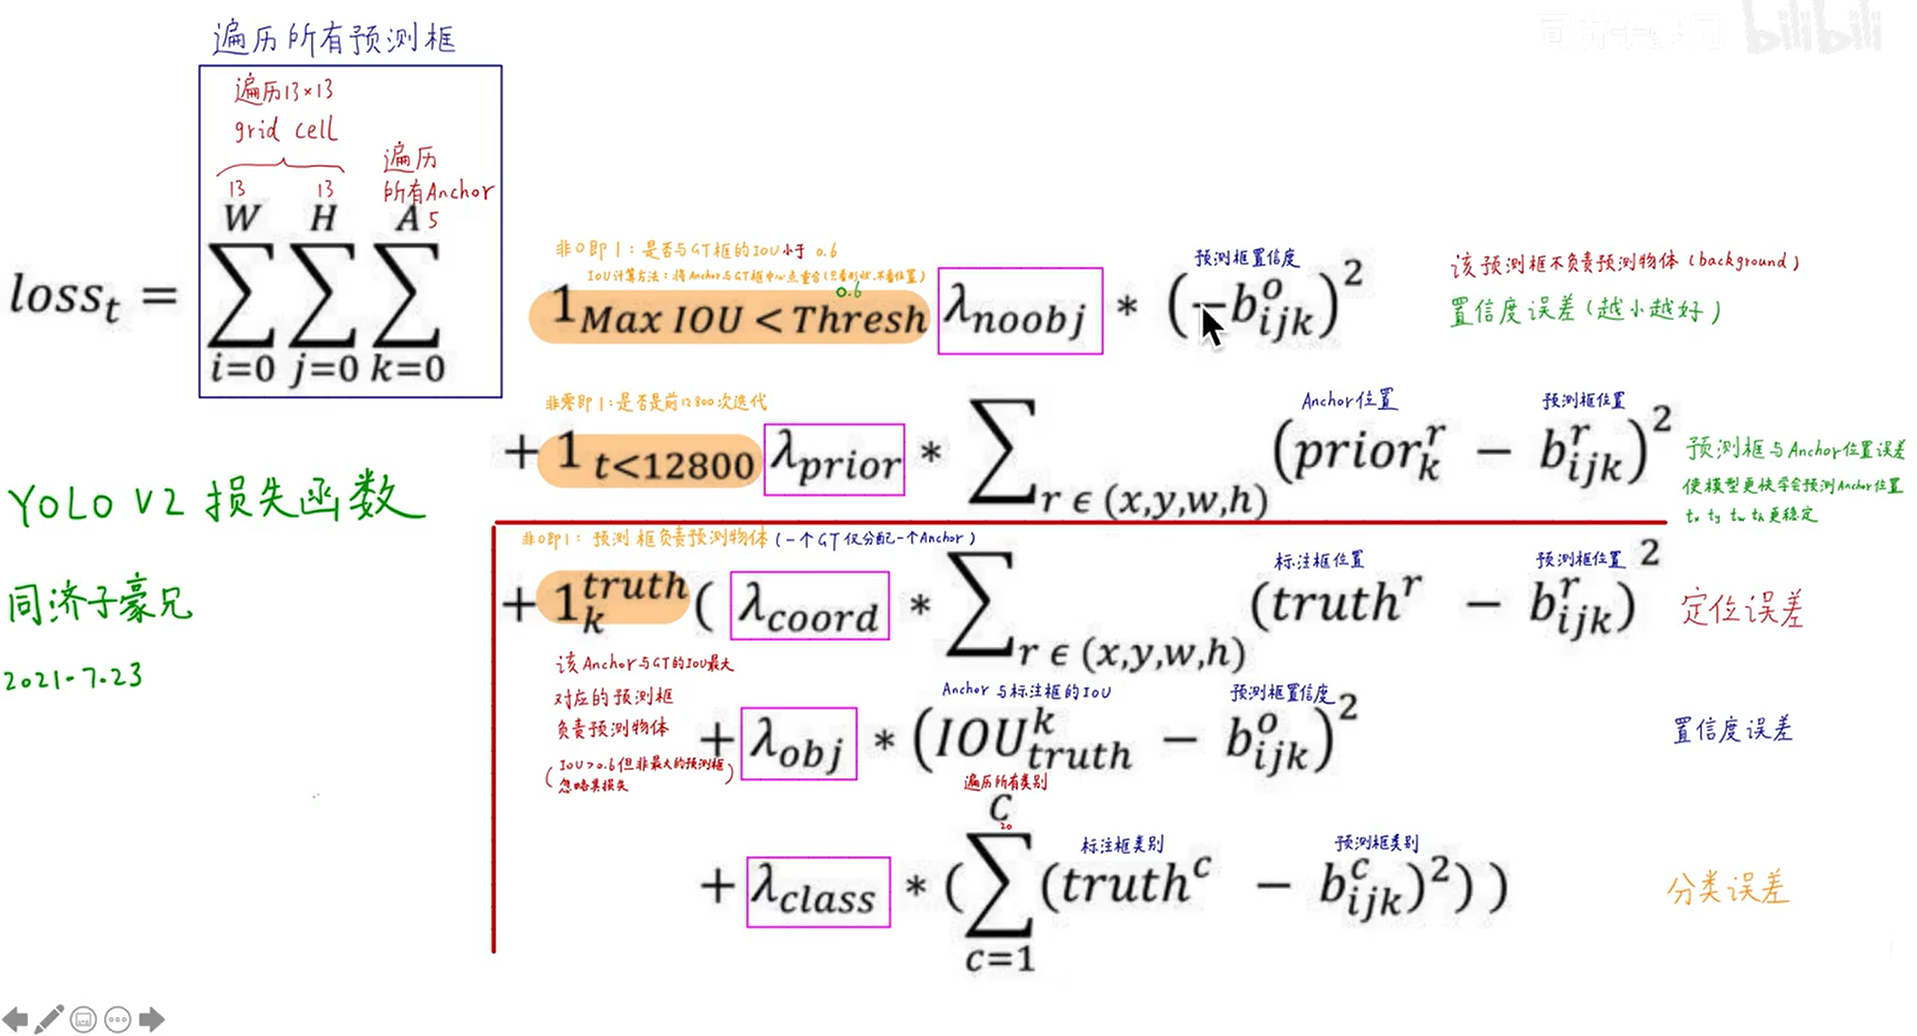 bilibili
遍历所有预测框
遍历13×13
grid cell
遍历
所有Anchor
13 13 5
W H A
loss_t = ∑ ∑ ∑
i=0 j=0 k=0
非0即1：是否与GT框的IOU小于 0.6
IOU计算方法：将Anchor与GT框中心点重合(只看形状，不看位置)
0.6
预测框置信度
1_{Max IOU < Thresh} λ_{noobj} * (−b_{ijk}^o)^2
该预测框不负责预测物体(background)
置信度误差(越小越好)
非零即1：是否是前12800次迭代
Anchor位置 预测框位置
+ 1_{t<12800} λ_{prior} * ∑_{r ϵ (x,y,w,h)} (prior_k^r − b_{ijk}^r)^2
预测框与Anchor位置误差
使模型更快学会预测Anchor位置
tx ty tw th更稳定
YOLO V2 损失函数
同济子豪兄
2021.7.23
非0即1：预测框负责预测物体(一个GT仅分配一个Anchor)
标注框位置 预测框位置
+ 1_k^{truth} ( λ_{coord} * ∑_{r ϵ (x,y,w,h)} (truth^r − b_{ijk}^r)^2
定位误差
该Anchor与GT的IOU最大
对应的预测框
负责预测物体
(IOU>0.6但非最大的预测框
忽略其损失)
Anchor与标注框的IOU 预测框置信度
+ λ_{obj} * (IOU_{truth}^k − b_{ijk}^o)^2
置信度误差
遍历所有类别
C
20
标注框类别 预测框类别
+ λ_{class} * (∑ (truth^c − b_{ijk}^c)^2) )
c=1
分类误差